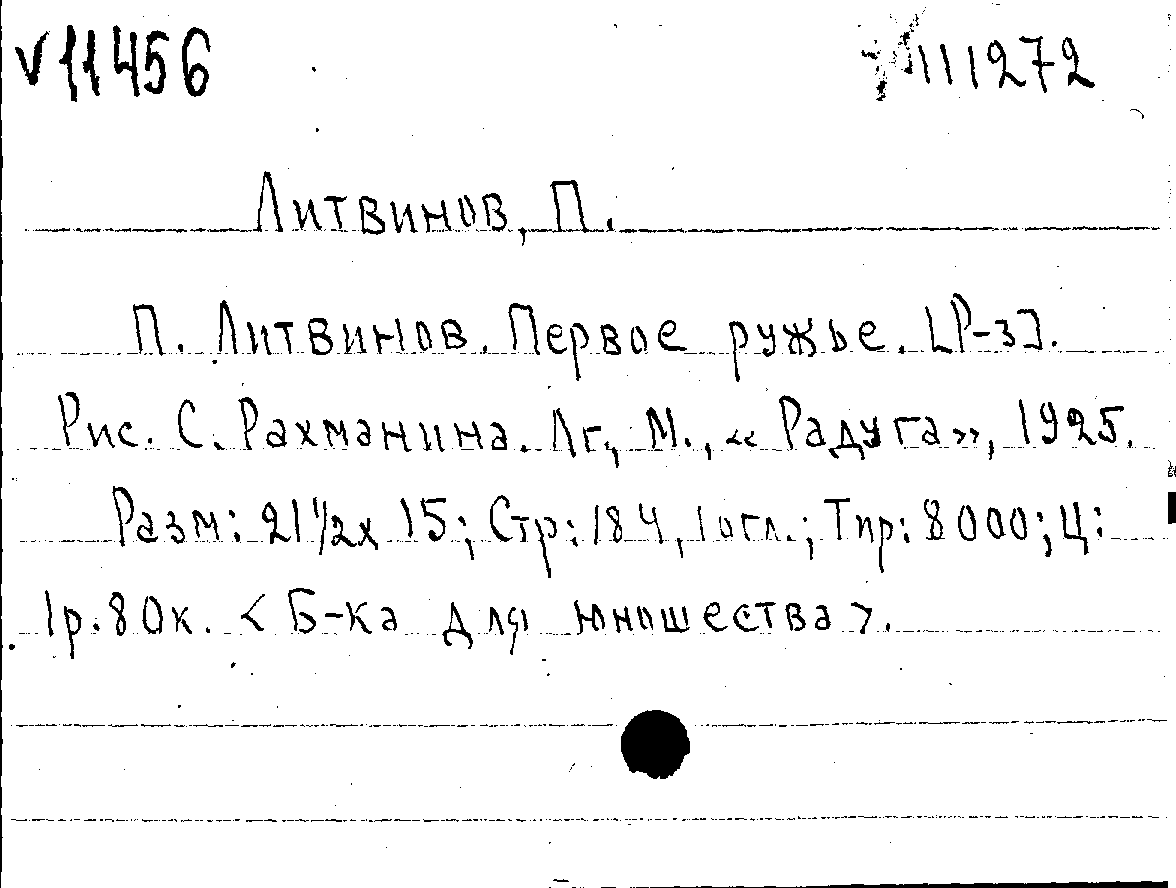 √11456 111272
Литвинов, П.
П. Литвинов. Первое ружье. [Р-з].
Рис. С. Рахманина. Лг., М., «Радуга», 1925.
Разм: 21 1/2 х 15; Стр: 184, 1 огл.; Тир: 8000; Ц:
1р. 80к. <Б-ка для юношества>.